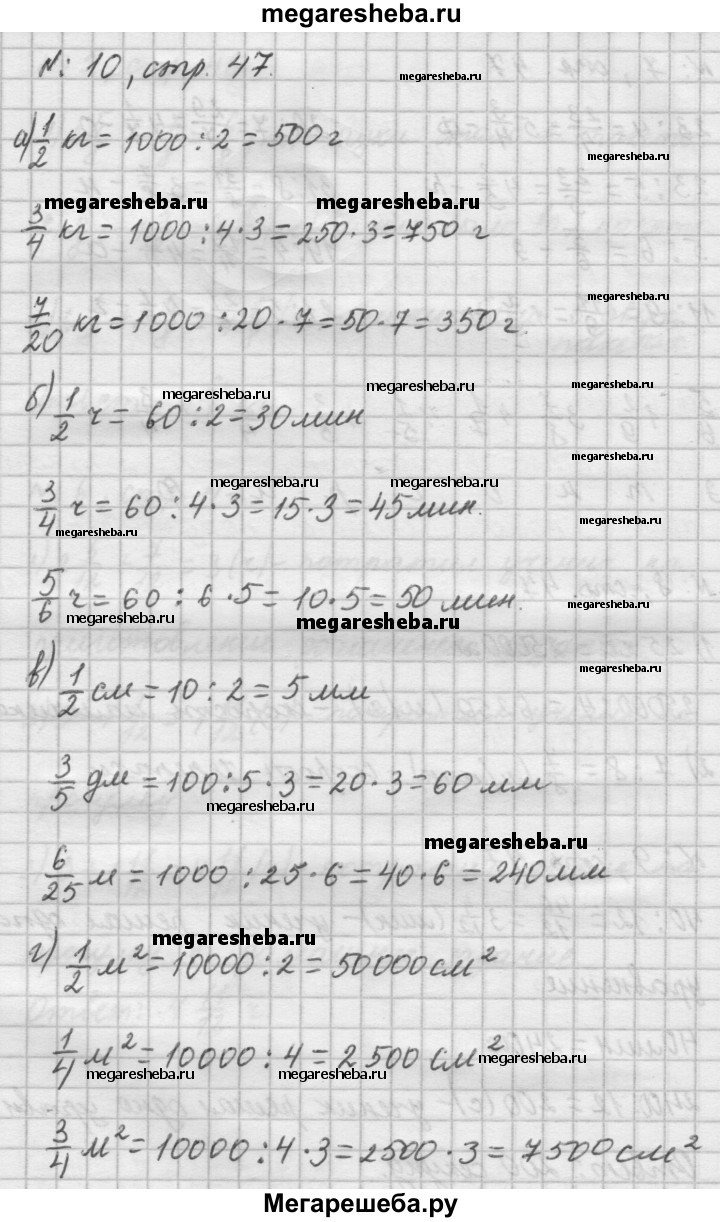 megaresheba.ru
№: 10, стр. 47.
megaresheba.ru
а) 1/2 кг = 1000 : 2 = 500 г
megaresheba.ru
megaresheba.ru megaresheba.ru
3/4 кг = 1000 : 4 · 3 = 250 · 3 = 750 г
megaresheba.ru
7/20 кг = 1000 : 20 · 7 = 50 · 7 = 350 г.
megaresheba.ru megaresheba.ru megaresheba.ru
б) 1/2 ч = 60 : 2 = 30 мин
megaresheba.ru
megaresheba.ru megaresheba.ru
3/4 ч = 60 : 4 · 3 = 15 · 3 = 45 мин.
megaresheba.ru
5/6 ч = 60 : 6 · 5 = 10 · 5 = 50 мин.
megaresheba.ru megaresheba.ru megaresheba.ru
megaresheba.ru
в) 1/2 см = 10 : 2 = 5 мм
3/5 дм = 100 : 5 · 3 = 20 · 3 = 60 мм
megaresheba.ru
megaresheba.ru
6/25 м = 1000 : 25 · 6 = 40 · 6 = 240 мм
megaresheba.ru
г) 1/2 м² = 10000 : 2 = 50000 см²
1/4 м² = 10000 : 4 = 2500 см²
megaresheba.ru megaresheba.ru megaresheba.ru
3/4 м² = 10000 : 4 · 3 = 2500 · 3 = 7500 см²
Мегарешеба.ру